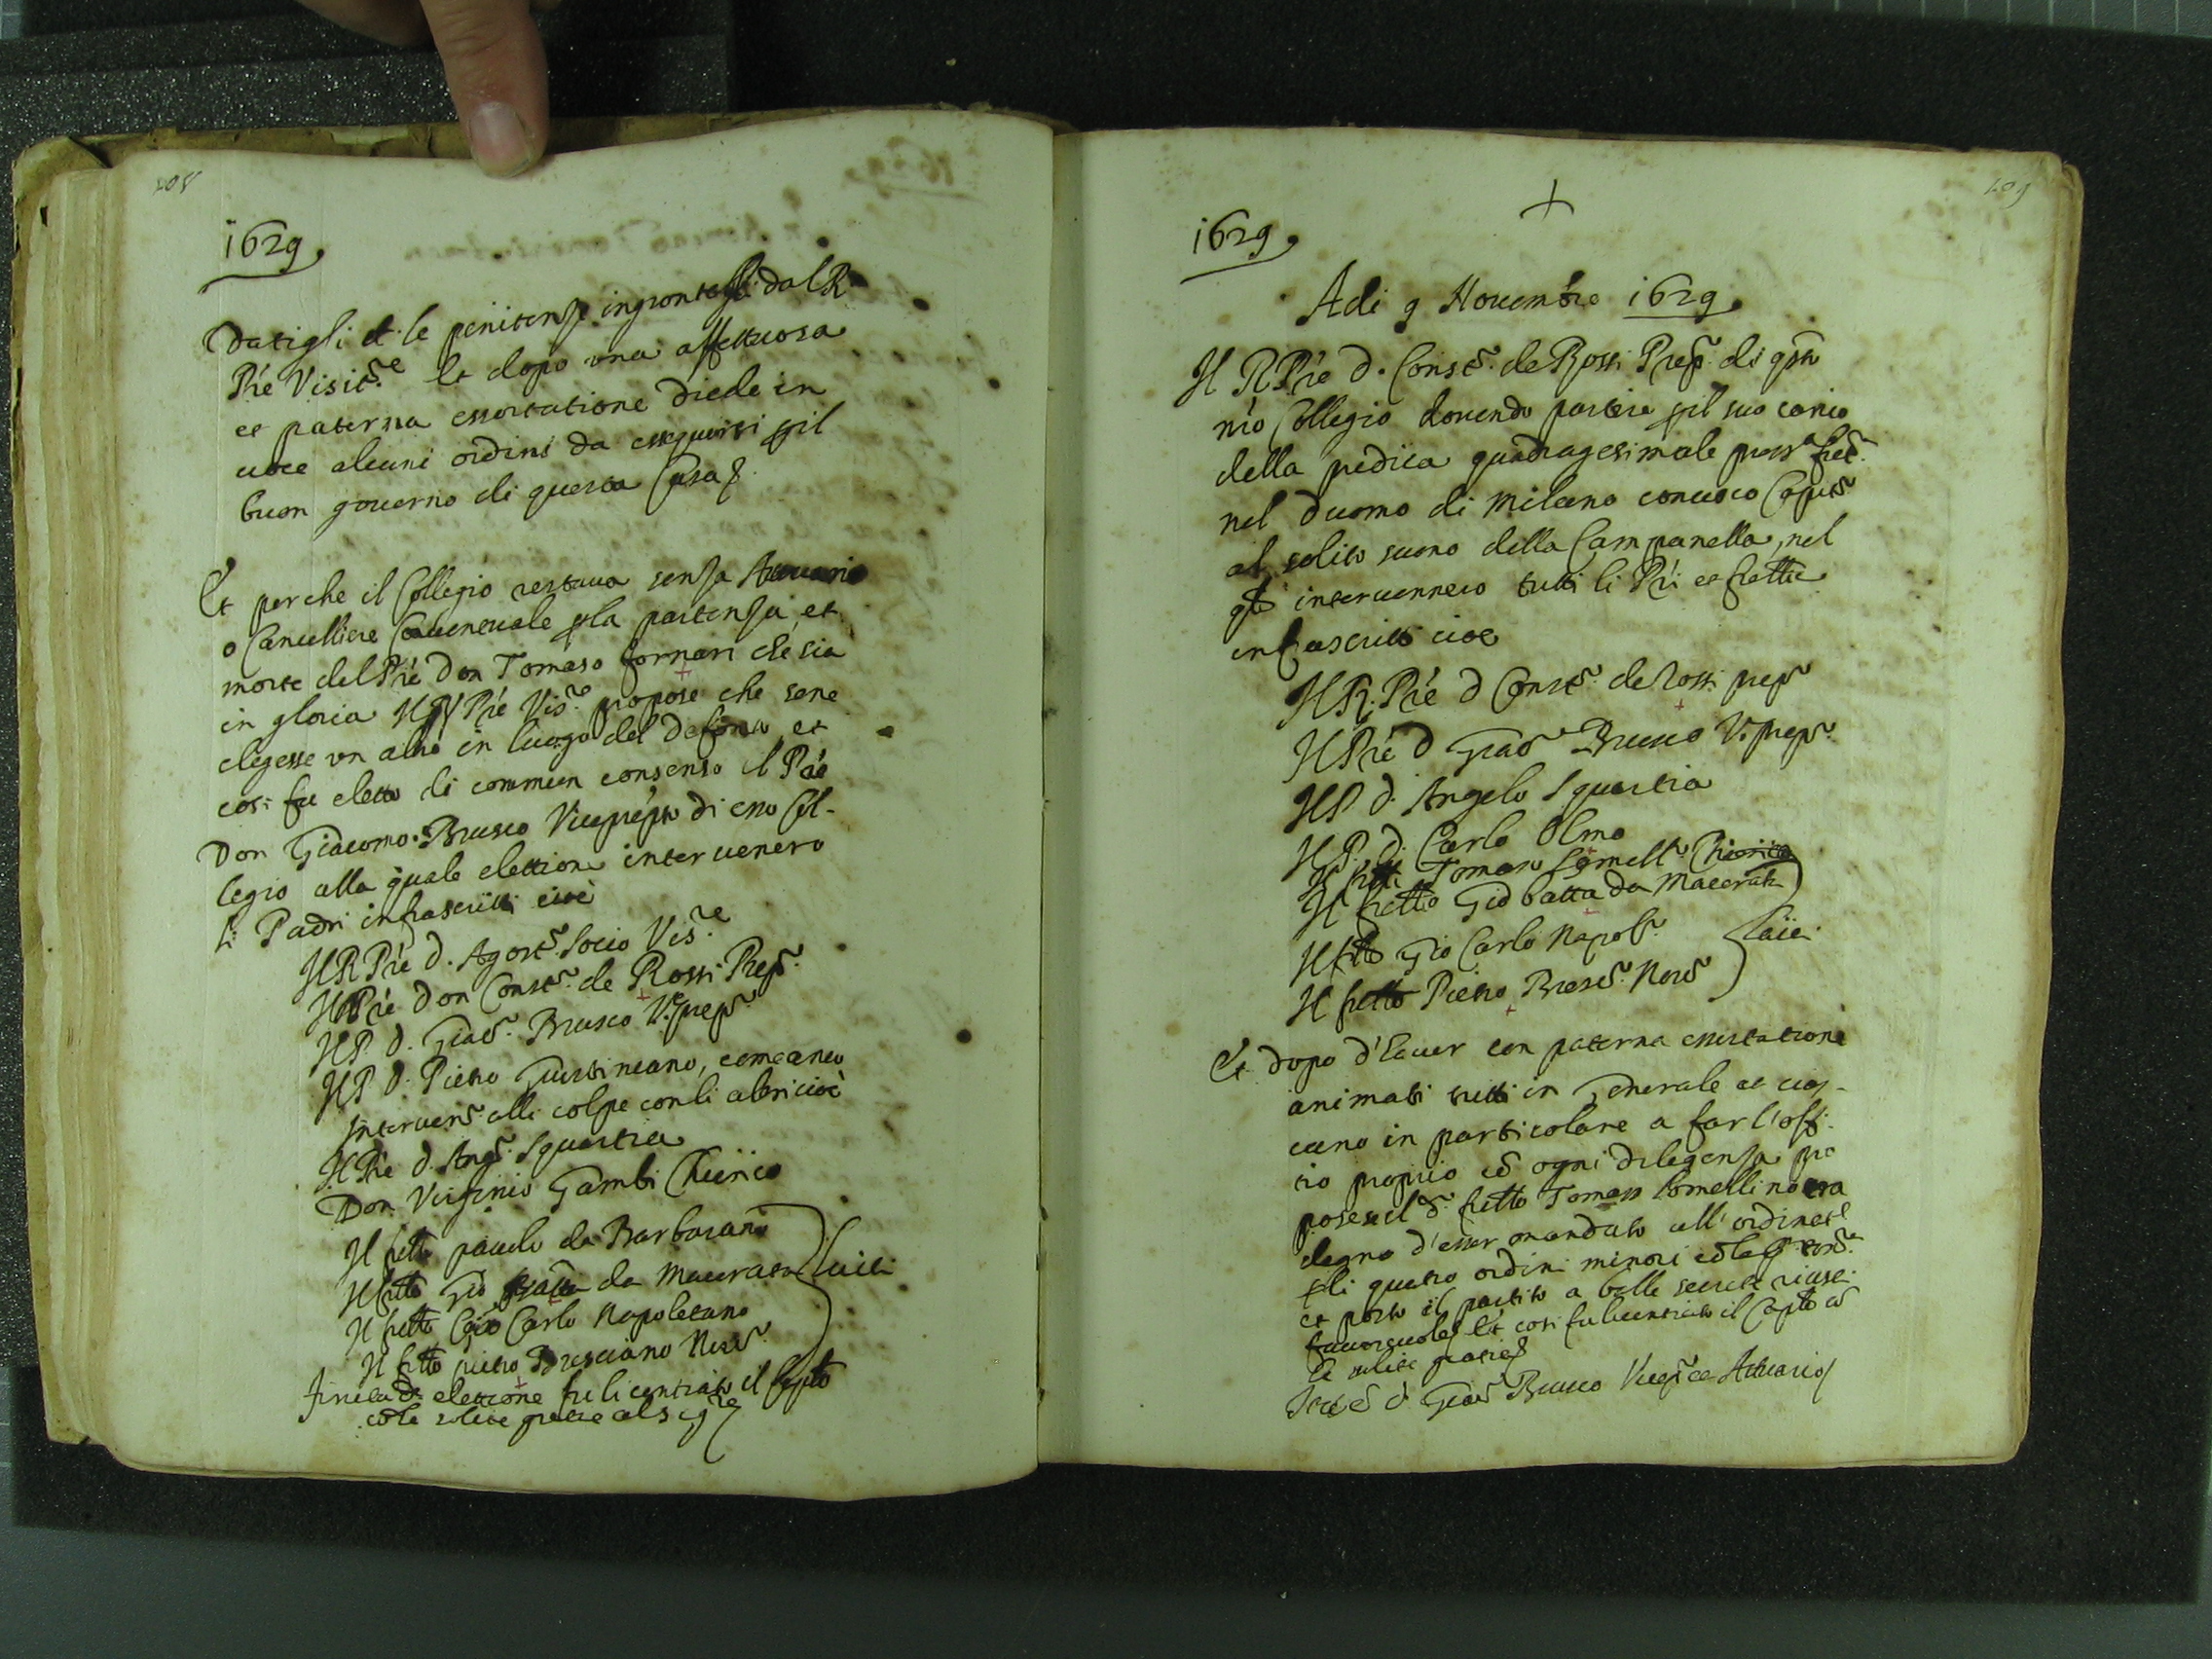 108
1629
Datigli le penitenze impronte dal R
Pré Visit.re Et dopo una affettuosa
et paterna essortatione diede in
uoce alcuni ordini da esseguirsi pil
buon gouerno di questa Casa
Et perche il Collegio restaua senza Attuario
o Cancelliere p la partenza, et
morte del Pré Don Tomaso fornari che sia
in gloria Il Pré Vis.re propose che sene
elegesse un altro in luogo del defonto et
cosi fu eletto di commun consenso il Pré
Don Giacomo Brusco di esso Col-
legio alla quale elettione interuenero
li Padri infrascritti cioè
Il R Pré D. Agost.o Socio Vis.re
Il Pré Don Const.o de Rossi Prep.o
Il P. D. Giac.o Brusco V. prep.o
Il P. D. Pietro Giustiniano, come anco
interuen.o alli colpe con li altri cioè
Il Pré D. Ang.o Squartia
Don Virginio Gambi Chierico
Il frètto paulo da Barbarano
Il frètto Gio batta da Macerata laici
Il frètto Gio Carlo Napoletano
Il frètto pietro Bresciano
finita d.a elettione fu licentiato il Capto
cō le solite gratie al Sig.re
109
1629
Adi 9 Nouembre 1629
Il R Pré D. Const.o de Rossi Prep.o di qsto
nrō Collegio douendo partire p il suo carico
della predica quadragesimale
nel duomo di Milano conuoco Capit.o
al solito suono della Campanella, nel
qle interuennero tutti li Pri et fratti
infrascritti cioe
Il R. Pré D Const.o de Rossi prep.o
Il Pré D Giac.o Brusco V. prep.o
Il P. D. Angelo Squartia
Il P. D. Carlo Olmo
Il frètto Tomaso Lomell.o Chierico
Il frètto Gio batta da Macerata
Il frètto Gio Carlo Napol.o laici
Il frètto Pietro Bresc.o
Et dopo d'hauer con paterna essortatione
animati tutti in Generale et cias-
cuno in particolare a far l'offi-
tio proprio cō ogni diligenza pro
pose se il d.o frètto Tomaso Lomellino era
degno d'esser mandato all'ordine
p li quatro ordini minori
et posto il partito a balle secrete riusci
fauoreuole Et cosi fu licentiato il Capto cō
le solite gratie
D Giac.o Brusco Attuario